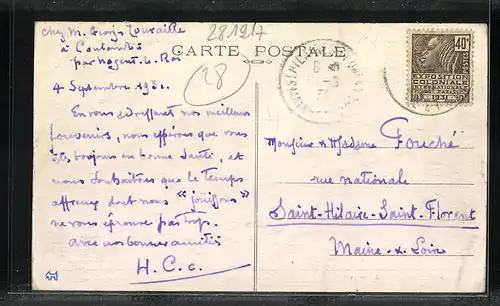 chez M. Georges Touraille
à Coulombs
par Nogent le Roi
4 Septembre 1931.
En vous adressant nos meilleurs
souvenirs, nous espérons que vous
êtes toujours en bonne santé, et
nous souhaitons que le temps
affreux dont nous "jouissons"
ne vous éprouve pas trop.
avec nos bonnes amitiés
H. C. c.
281217
28
CARTE POSTALE
40c
POSTES
EXPOSITION
COLONIALE
INTERNATIONALE
PARIS 1931
Monsieur & Madame Fouché
rue nationale
Saint-Hilaire-Saint-Florent
Maine-&-Loire